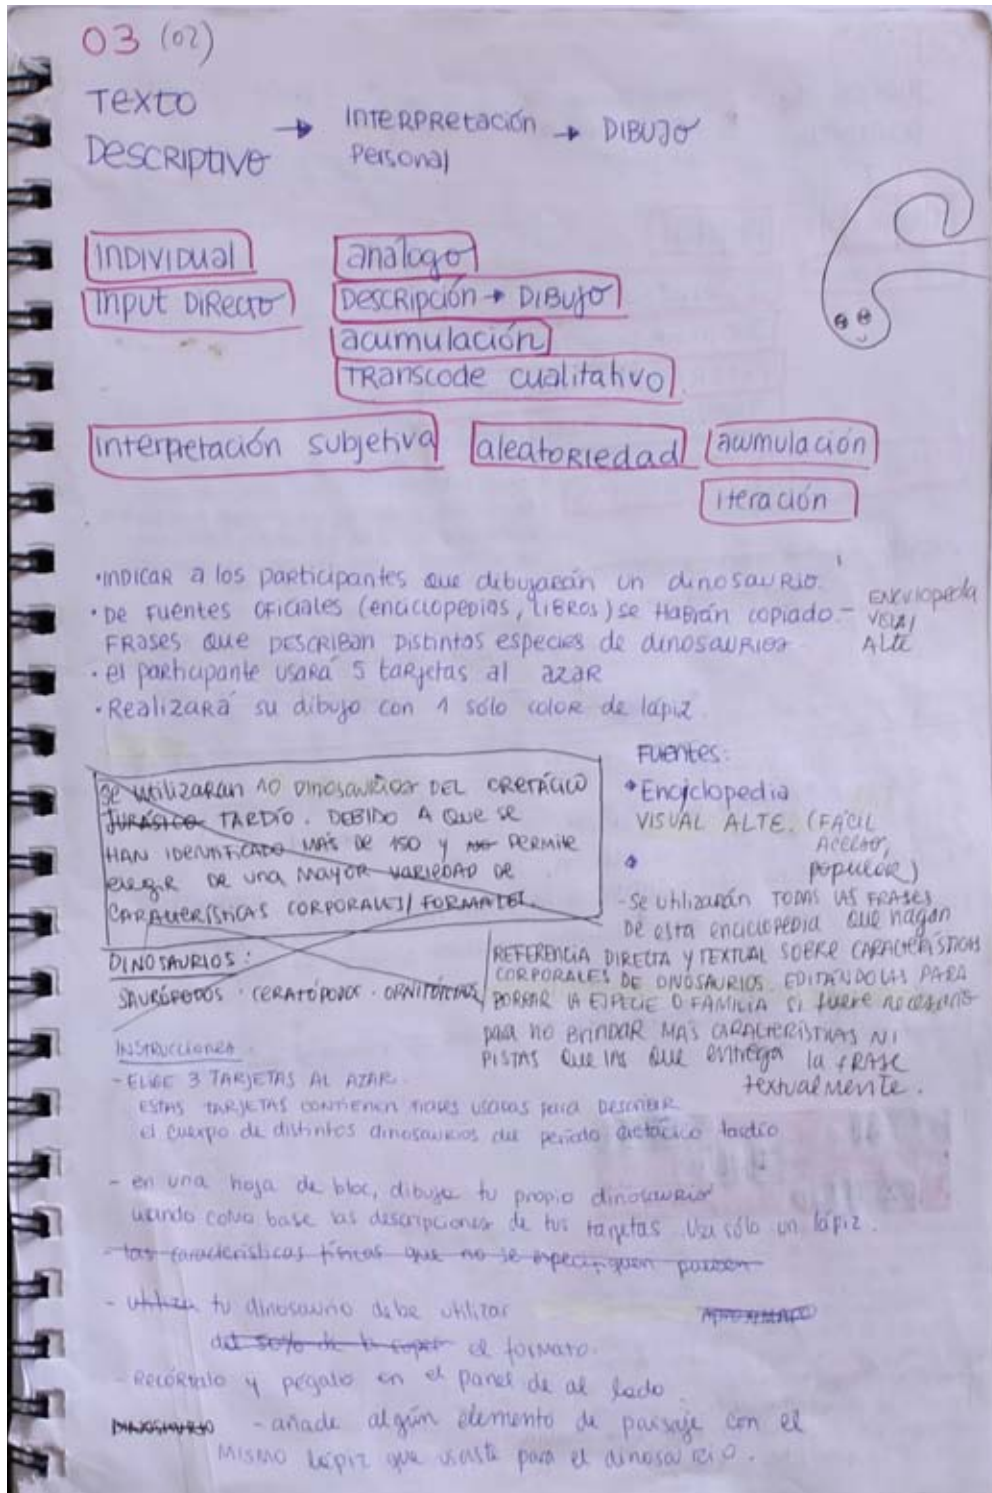 03 (02)
Texto
Descriptivo → Interpretación
Personal → DIBUJO
Individual
análogo
Input Directo
Descripción → Dibujo
acumulación
Transcode cualitativo
Interpretación subjetiva
aleatoriedad
acumulación
iteración
• Indicar a los participantes que dibujarán un dinosaurio.
• De fuentes oficiales (enciclopedias, libros) se habrán copiado –
frases que describan distintos especies de dinosaurios
Enciclopedia
Visual
Alte
• el participante usará 5 tarjetas al azar
• Realizará su dibujo con 1 sólo color de lápiz.
Se utilizarán 10 dinosaurios del cretácico
jurásico tardío. Debido a que se
han identificado más de 150 y no permite
elegir de una mayor variedad de
características corporales/formales.
Dinosaurios:
Saurópodos · Ceratópodos ·
Fuentes:
Enciclopedia
Visual Alte. (Fácil
Acceso,
popular)
- Se utilizarán todas las frases
de esta enciclopedia que hagan
referencia directa y textual sobre características
corporales de dinosaurios. Editándolas para
borrar la especie o familia si fuere necesario
para no brindar más características ni
pistas que las que entrega la frase
textualmente.
Instrucciones
- Elige 3 tarjetas al azar.
Estas tarjetas contienen frases usadas para describir
el cuerpo de distintos dinosaurios del período cretácico tardío
- en una hoja de bloc, dibuja tu propio dinosaurio
usando como base las descripciones de tus tarjetas. Usa sólo un lápiz.
- las características físicas que no se especifiquen pueden
- utiliza tu dinosaurio debe utilizar aproximado
del 50% de la super el formato.
- Recórtalo y pégalo en el panel de al lado.
Dinosaurio - añade algún elemento de paisaje con el
mismo lápiz que usaste para el dinosaurio.